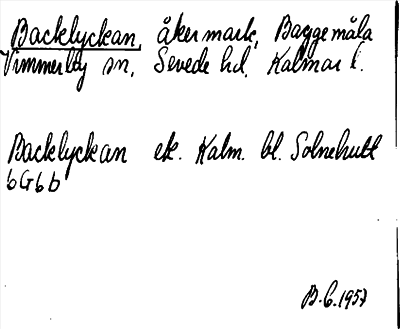 Backlyckan, åkermark, Baggemåla
Vimmerby sn, Sevede hd, Kalmar l.
Backlyckan ek. Kalm. bl. Solnehult
6G6b
B.G.1957